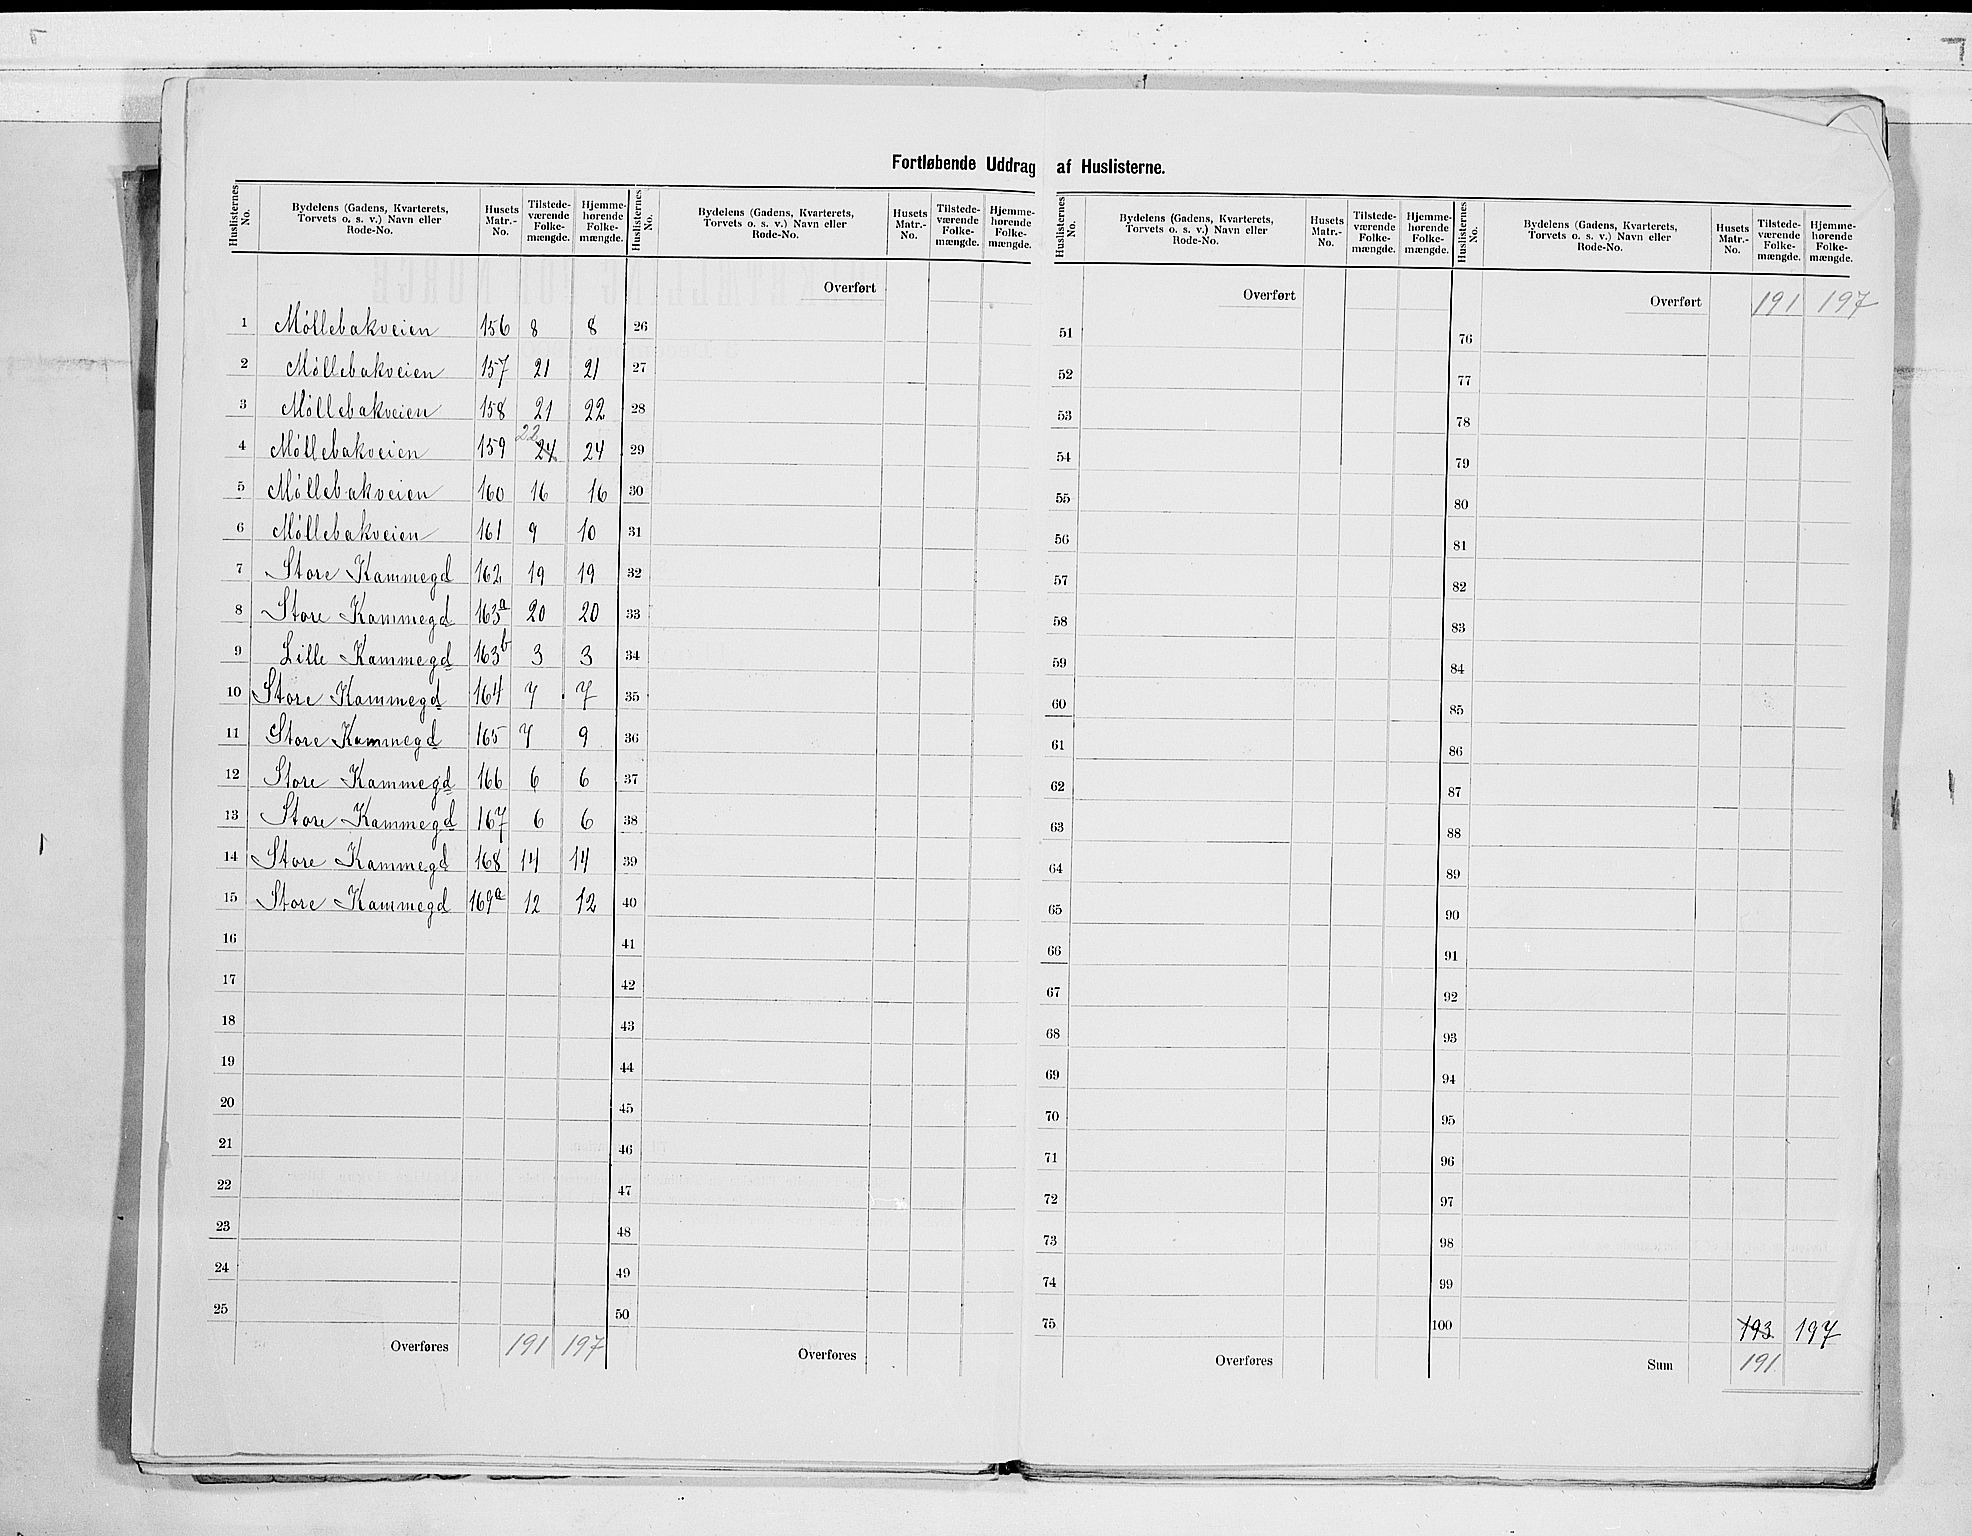 Fortløbende Uddrag af Huslisterne.
Huslisternes No. | Bydelens (Gadens, Kvarterets, Torvets o. s. v.) Navn eller Rode-No. | Husets Matr.-No. | Tilstedeværende Folkemængde. | Hjemmehørende Folkemængde.
1 Møllebakveien 156 8 8
2 Møllebakveien 157 21 21
3 Møllebakveien 158 21 22
4 Møllebakveien 159 22 24 24
5 Møllebakveien 160 16 16
6 Møllebakveien 161 9 10
7 Store Kammegd 162 19 19
8 Store Kammegd 163a 20 20
9 Lille Kammegd 163b 3 3
10 Store Kammegd 164 7 7
11 Store Kammegd 165 7 9
12 Store Kammegd 166 6 6
13 Store Kammegd 167 6 6
14 Store Kammegd 168 14 14
15 Store Kammegd 169a 12 12
16
17
18
19
20
21
22
23
24
25
Overføres 191 197
Huslisternes No. | Bydelens (Gadens, Kvarterets, Torvets o. s. v.) Navn eller Rode-No. | Husets Matr.-No. | Tilstedeværende Folkemængde. | Hjemmehørende Folkemængde.
Overført
26
27
28
29
30
31
32
33
34
35
36
37
38
39
40
41
42
43
44
45
46
47
48
49
50
Overføres
Huslisternes No. | Bydelens (Gadens, Kvarterets, Torvets o. s. v.) Navn eller Rode-No. | Husets Matr.-No. | Tilstedeværende Folkemængde. | Hjemmehørende Folkemængde.
Overført
51
52
53
54
55
56
57
58
59
60
61
62
63
64
65
66
67
68
69
70
71
72
73
74
75
Overføres
Huslisternes No. | Bydelens (Gadens, Kvarterets, Torvets o. s. v.) Navn eller Rode-No. | Husets Matr.-No. | Tilstedeværende Folkemængde. | Hjemmehørende Folkemængde.
Overført 191 197
76
77
78
79
80
81
82
83
84
85
86
87
88
89
90
91
92
93
94
95
96
97
98
99
100 193 197
Sum 191